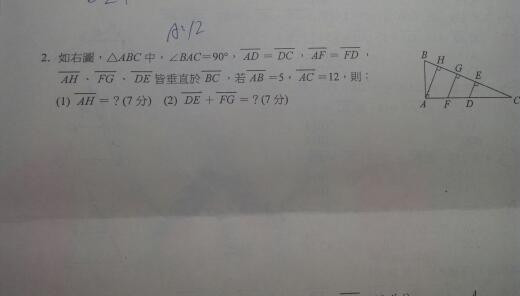 A:12
2. 如右圖，△ABC 中，∠BAC=90°，AD = DC，AF = FD，
AH、FG、DE 皆垂直於 BC，若 AB =5，AC =12，則：
(1) AH = ？(7 分) (2) DE + FG = ？(7 分)
B H G E
A F D C